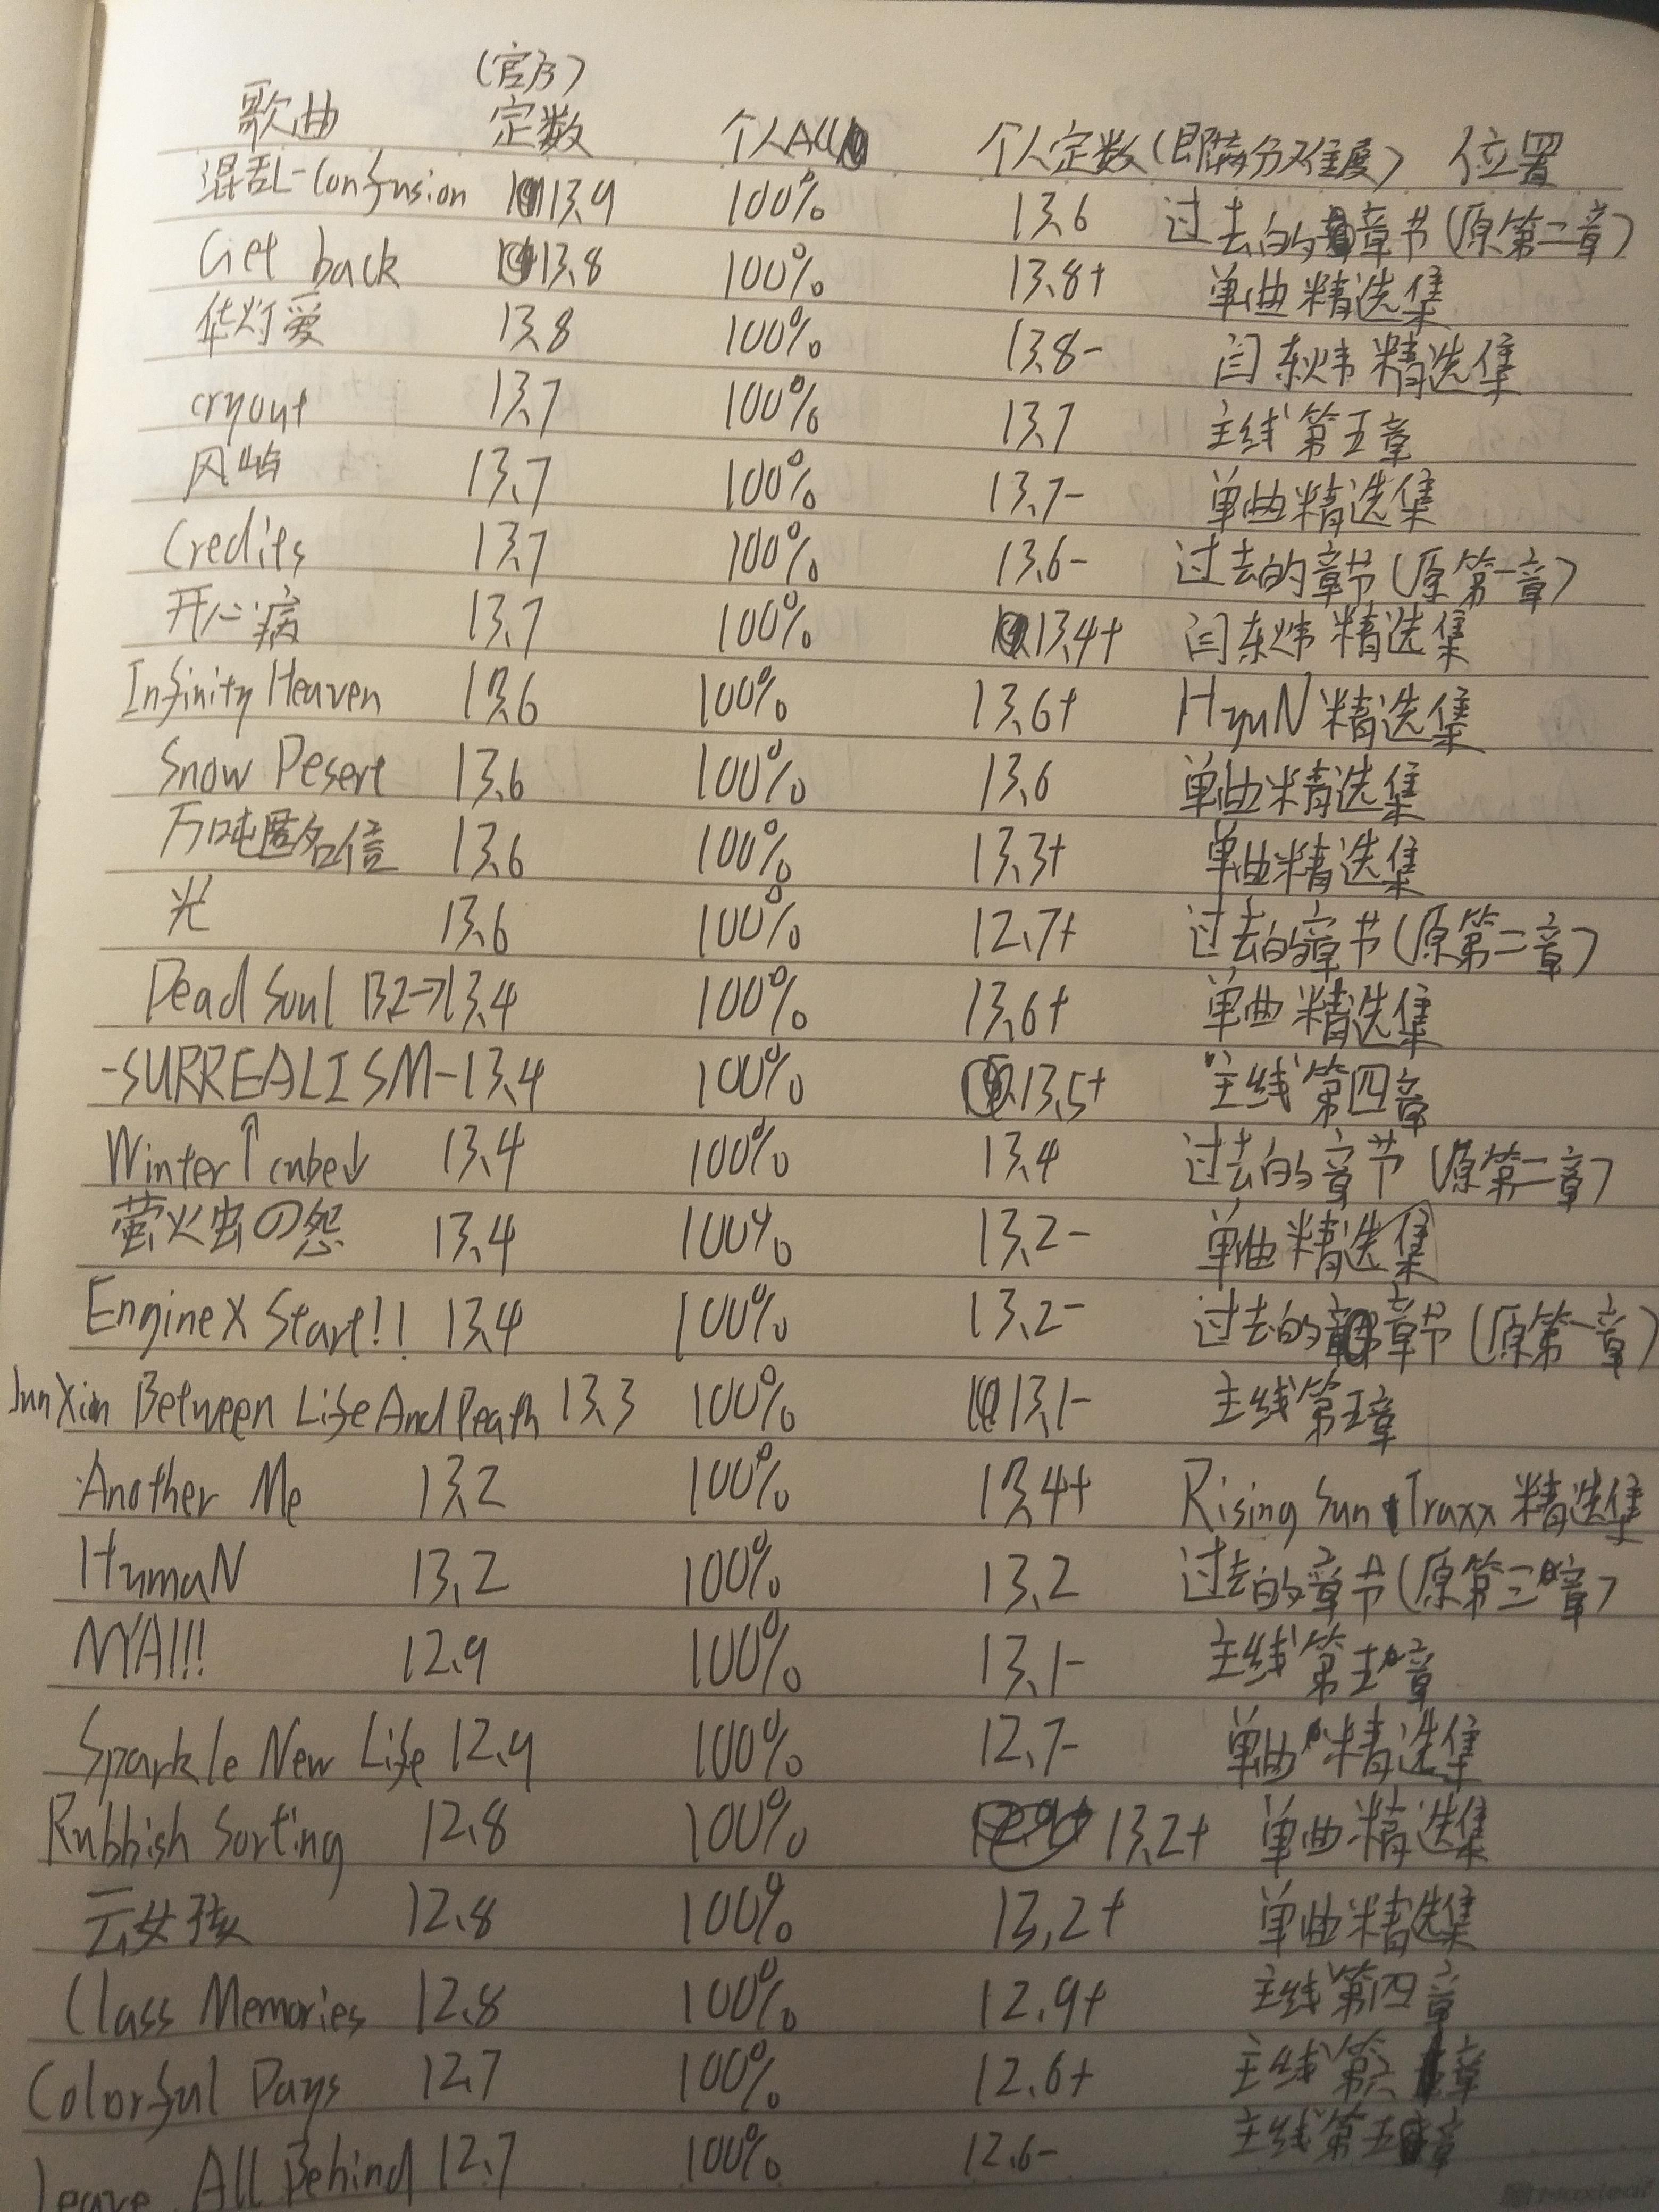 (官方)
歌曲 定数 个人Acc 个人定数(即满分难度) 位置
混乱-Confusion 13.9 100% 13.6 过去的章节(原第二章)
Get back 13.8 100% 13.8+ 单曲精选集
华灯爱 13.8 100% 13.8- 闫东炜精选集
cryout 13.7 100% 13.7 主线第五章
风屿 13.7 100% 13.7- 单曲精选集
Credits 13.7 100% 13.6- 过去的章节(原第一章)
开心病 13.7 100% 13.4+ 闫东炜精选集
Infinity Heaven 13.6 100% 13.6+ HyuN精选集
Snow Desert 13.6 100% 13.6 单曲精选集
万吨匿名信 13.6 100% 13.3+ 单曲精选集
光 13.6 100% 12.7+ 过去的章节(原第二章)
Dead Soul B2→13.4 100% 13.6+ 单曲精选集
-SURREALISM- 13.4 100% 13.5+ 主线第四章
Winter↑cube↓ 13.4 100% 13.4 过去的章节(原第二章)
萤火虫の怨 13.4 100% 13.2- 单曲精选集
Engine x Start!! 13.4 100% 13.2- 过去的章节(原第一章)
JunXion Between Life And Death 13.3 100% 13.1- 主线第五章
Another Me 13.2 100% 13.4+ Rising Sun Traxx 精选集
HumaN 13.2 100% 13.2 过去的章节(原第三章)
NYA!!! 12.9 100% 13.1- 主线第五章
Sparkle New Life 12.9 100% 12.7- 单曲精选集
Rubbish Sorting 12.8 100% 13.2+ 单曲精选集
云女孩 12.8 100% 13.2+ 单曲精选集
Class Memories 12.8 100% 12.9+ 主线第四章
Colorful Days 12.7 100% 12.6+ 主线第六章
Leave All Behind 12.7 100% 12.6- 主线第五章